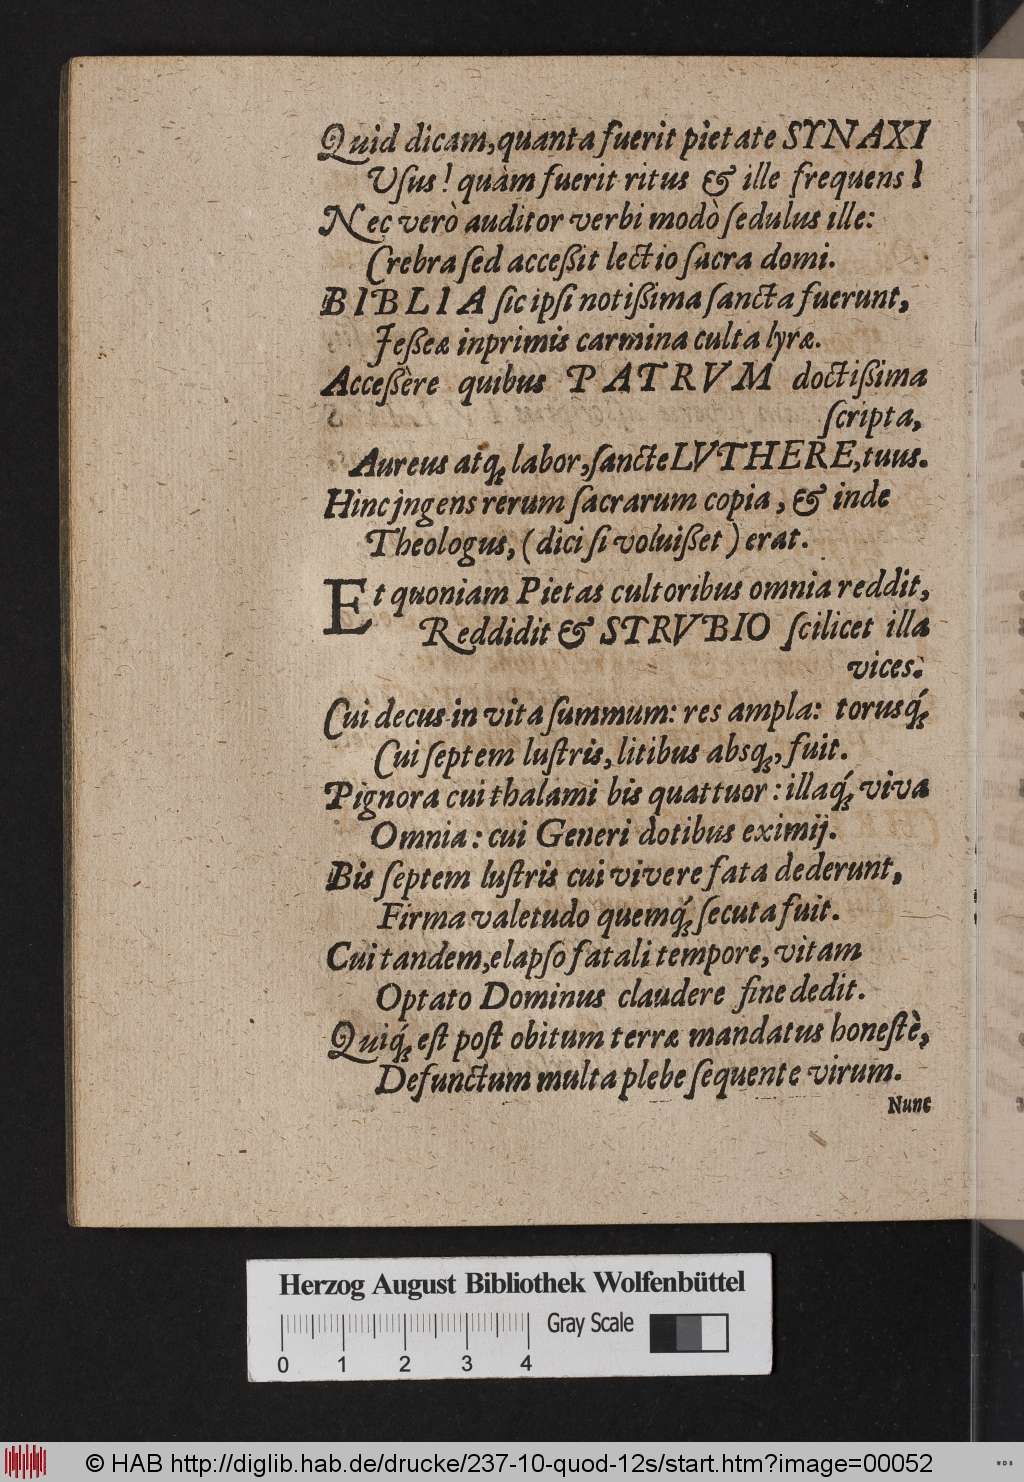 Quid dicam, quanta fuerit pietate SYNAXI
Uſus! quàm fuerit ritus & ille frequens!
Nec verò auditor verbi modò ſedulus ille:
Crebra ſed acceßit lectio ſacra domi.
BIBLIA ſic ipſi notißima ſancta fuerunt,
Jeßeæ inprimis carmina culta lyræ.
Acceßère quibus PATRVM doctißima
ſcripta,
Aureus atq́; labor, ſancte LVTHERE, tuus.
Hinc jngens rerum ſacrarum copia, & inde
Theologus, (dici ſi voluißet) erat.
Et quoniam Pietas cultoribus omnia reddit,
Reddidit & STRVBIO ſcilicet illa
vices.
Cui decus in vita ſummum: res ampla: torusq́;
Cui ſeptem luſtris, litibus absq;, fuit.
Pignora cui thalami bis quattuor: illaq́; viva
Omnia: cui Generi dotibus eximij.
Bis ſeptem luſtris cui vivere fata dederunt,
Firma valetudo quemq́; ſecuta fuit.
Cui tandem, elapſo fatali tempore, vitam
Optato Dominus claudere fine dedit.
Quiq́; eſt poſt obitum terræ mandatus honeſtè,
Defunctum multa plebe ſequente virum.
Nunc
Herzog August Bibliothek Wolfenbüttel
Gray Scale
0 1 2 3 4
© HAB http://diglib.hab.de/drucke/237-10-quod-12s/start.htm?image=00052